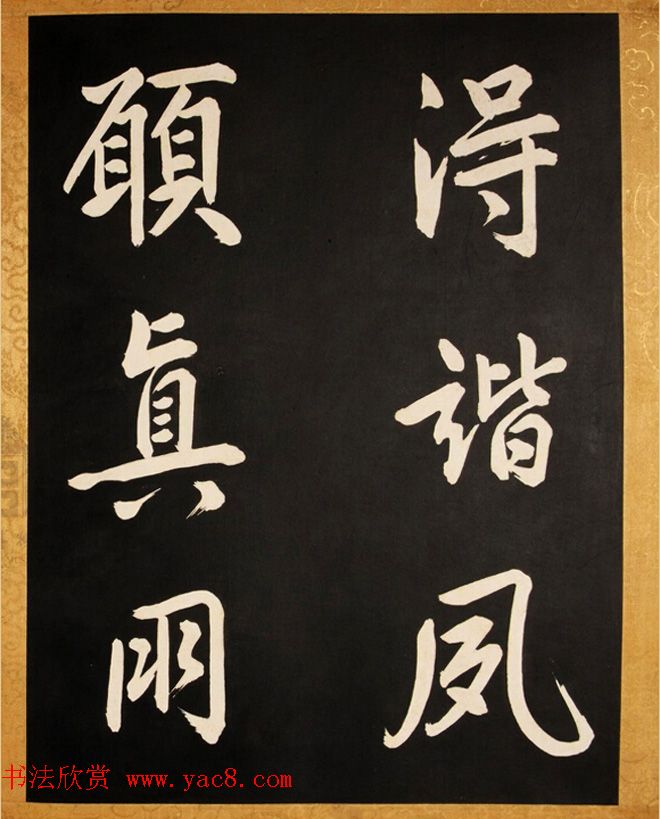 得諧夙
願真明
书法欣赏 www.yac8.com